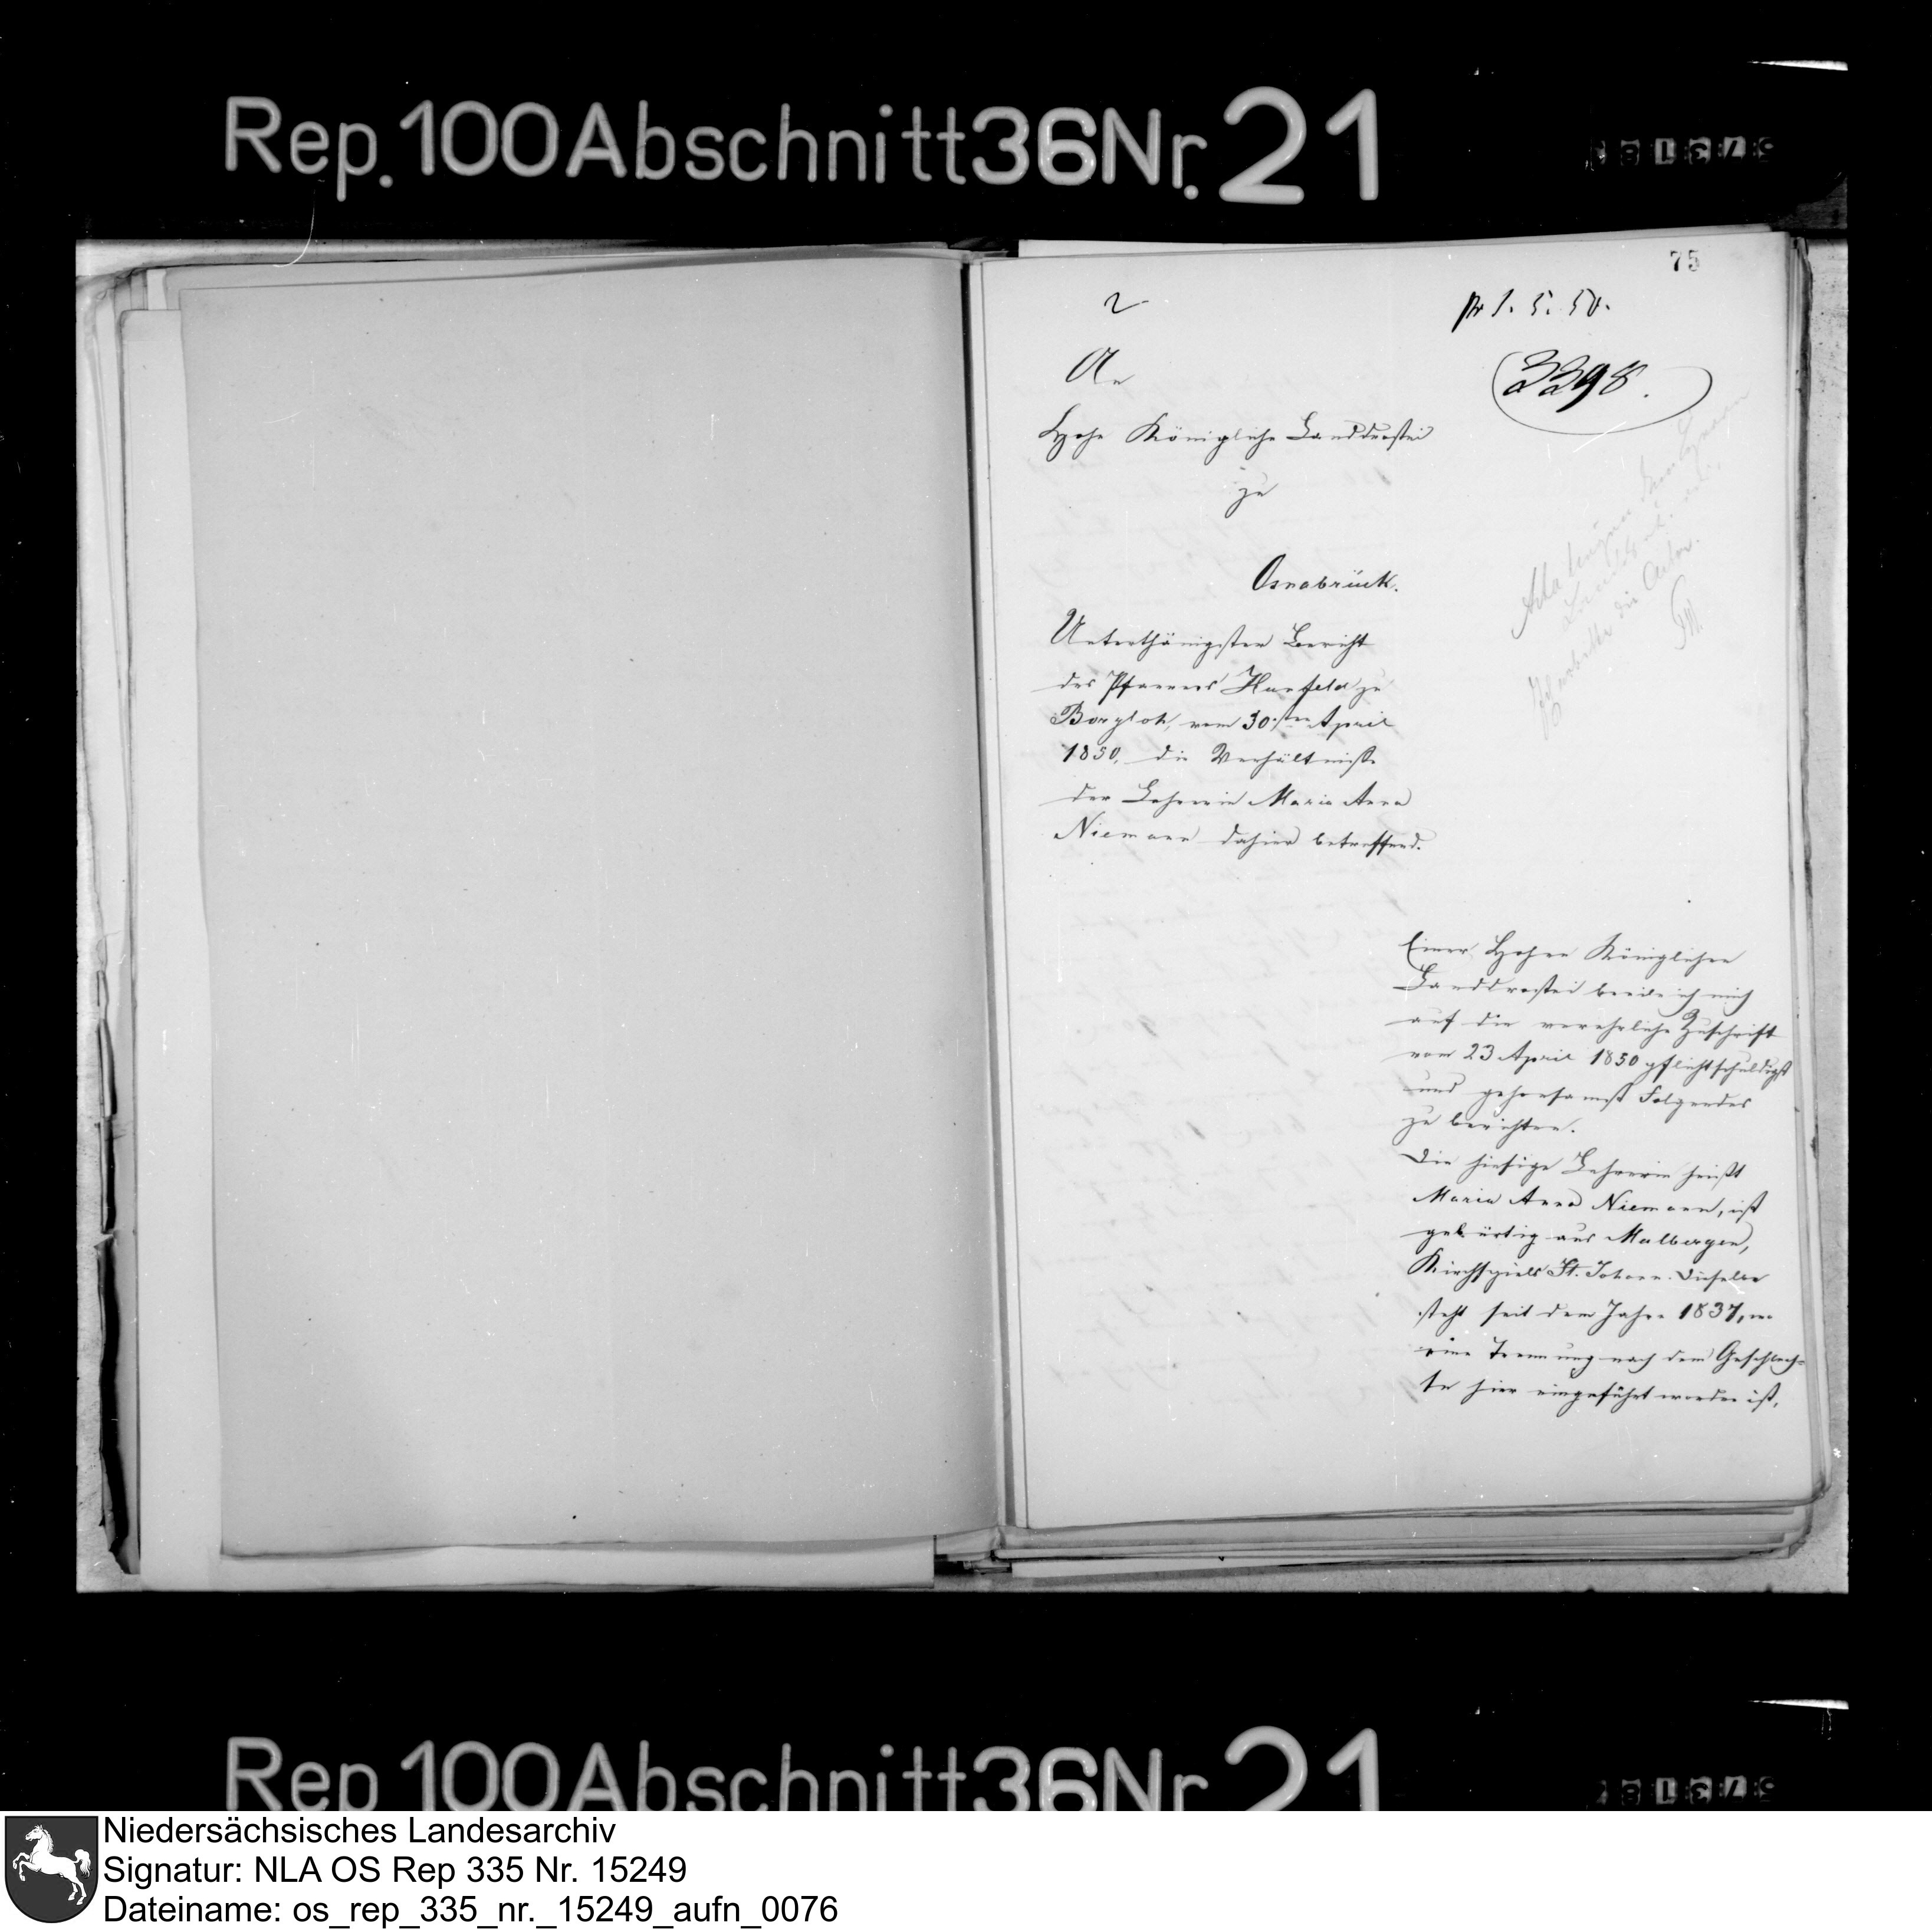 Rep. 100 Abschnitt 36 Nr. 21
75
pr 1. 5. 50.
2
3398.
An
Hohe Königliche Landdrostei
zu
Osnabrück.
Unterthänigster Bericht
des Pfarrers Hanfeld zu
Borgloh, vom 30sten April
1850, die Verhältnisse
der Lehrerin Maria Anna
Niemann dahier betreffend.
Einer Hohen Königlichen
Landdrostei beeile ich mich
auf die verehrliche Zuschrift
vom 23 April 1850 pflichtschuldigst
und gehorsamst Folgendes
zu berichten.
Die hiesige Lehrerin heißt
Maria Anna Niemann, ist
gebürtig aus Malbergen,
Kirchspiels St. Johann. Dieselbe
steht seit dem Jahre 1837, wo
eine Trennung nach dem Geschlech-
te hier eingeführt worden ist,
Rep 100 Abschnitt 36 Nr 21
Niedersächsisches Landesarchiv
Signatur: NLA OS Rep 335 Nr. 15249
Dateiname: os_rep_335_nr._15249_aufn_0076